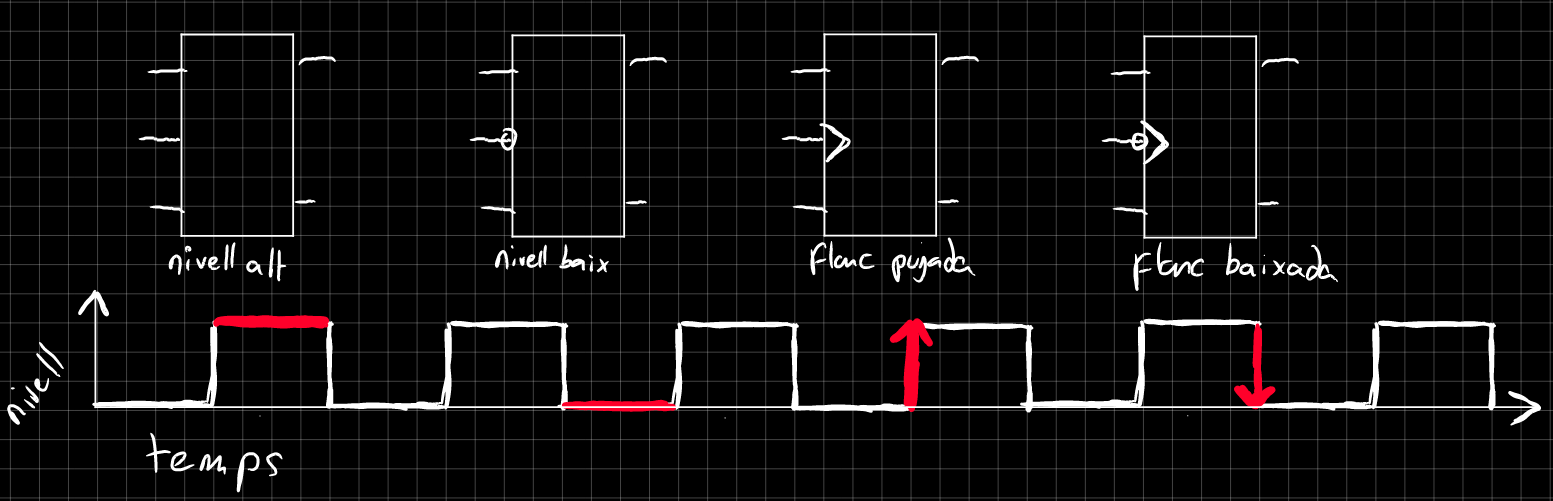 nivell alt
nivell baix
flanc pujada
flanc baixada
nivell
temps